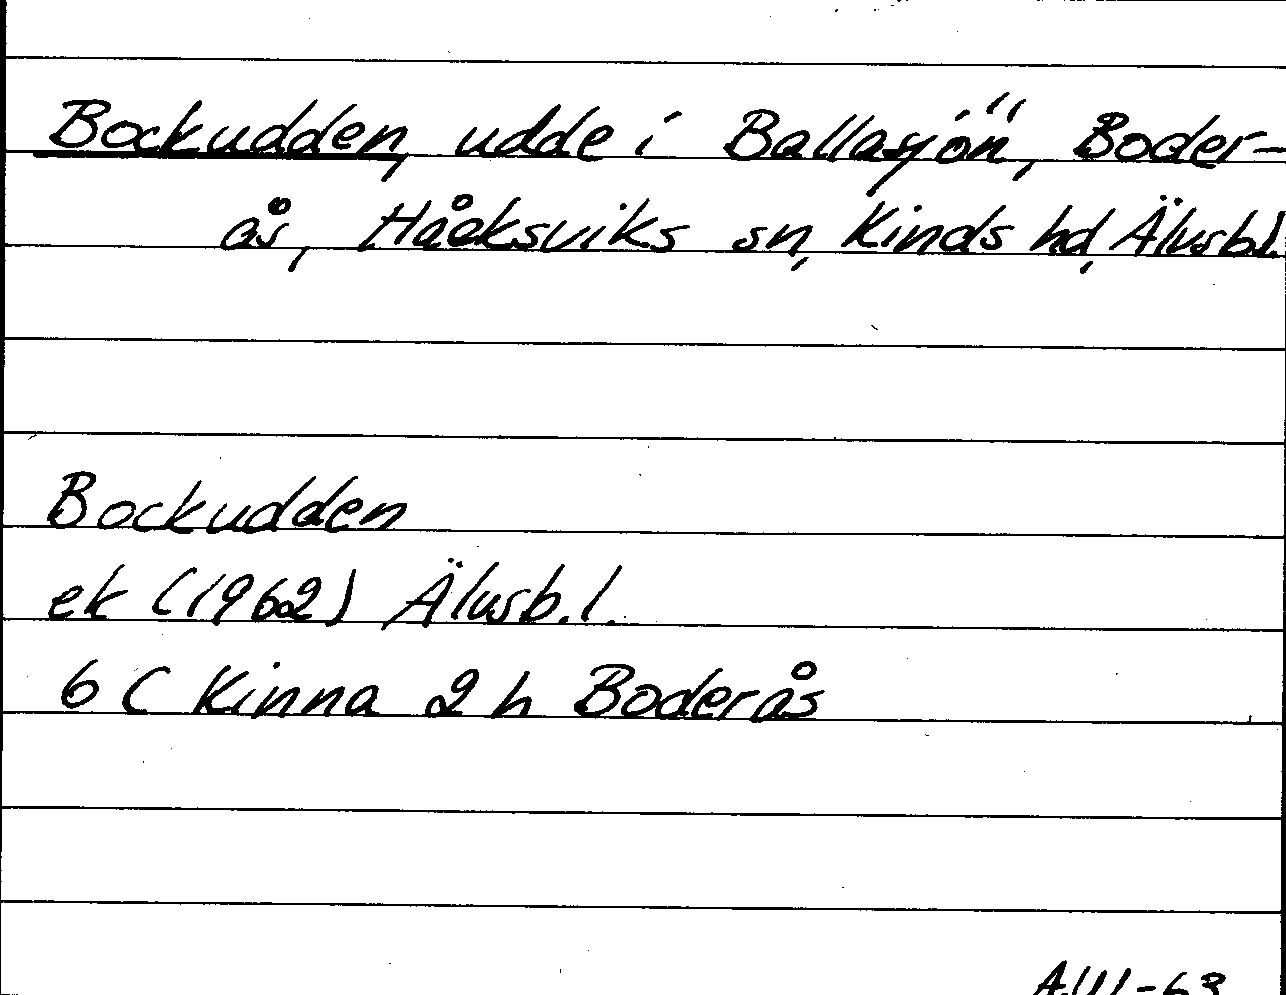 Bockudden, udde i Ballasjön, Boder-
ås, Håcksviks sn, Kinds hd, Älvsb.l.
Bockudden
ek (1962) Älvsb.l.
6 C Kinna 2 h Boderås